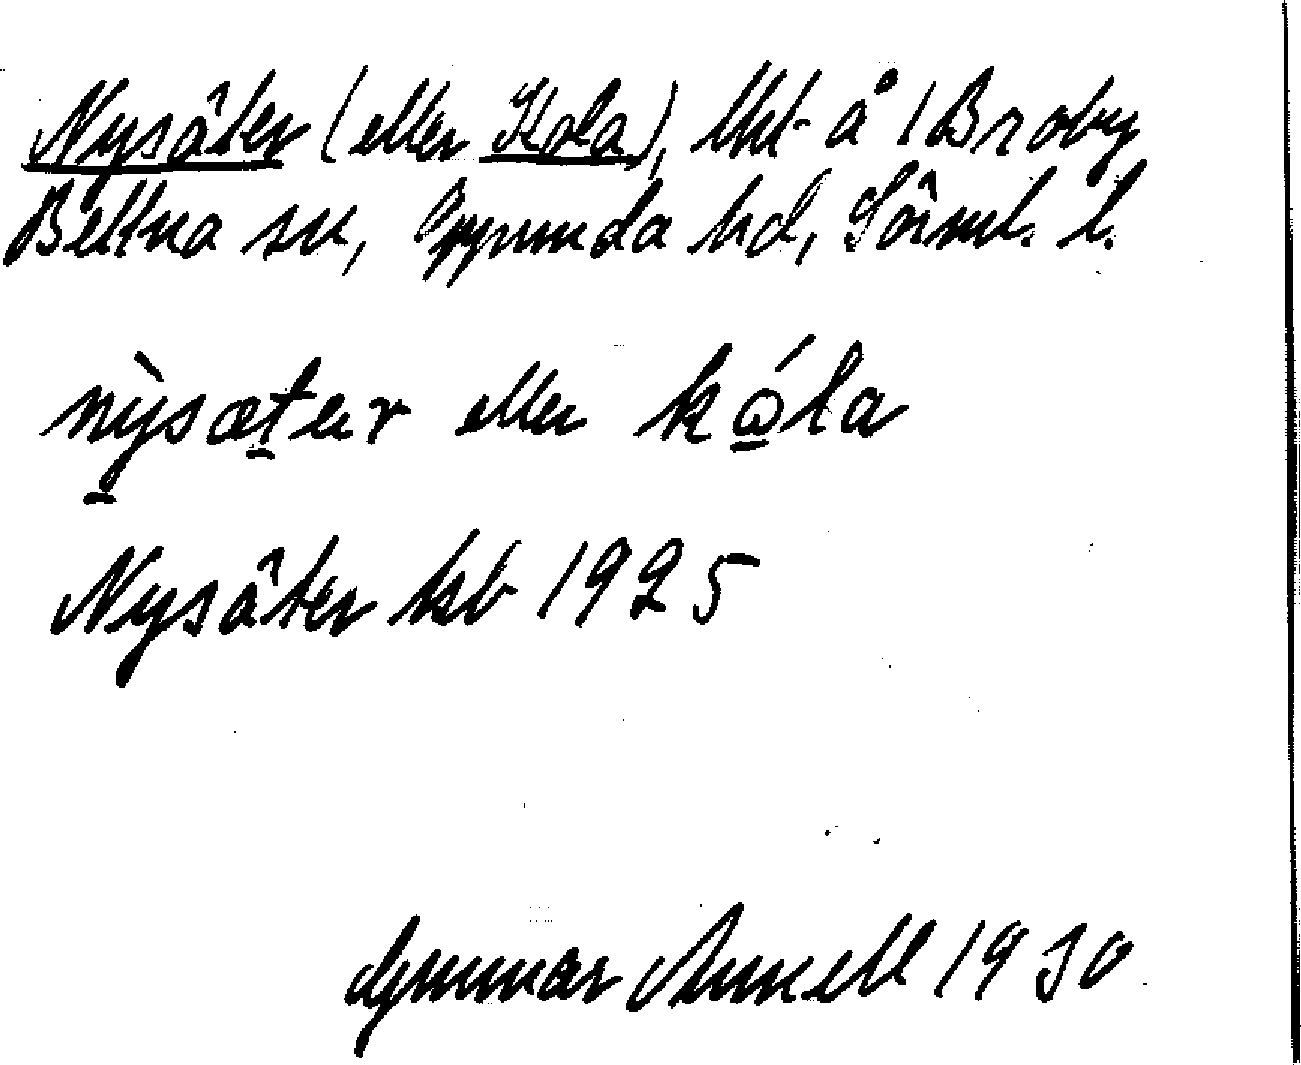 Nysäter (eller Kola), lht å 1 Broby
Bettna sn, Oppunda hd, Sörml. l.
nỳsæter eller kåla
Nysäter kb 1925
Gunnar Amell 1930